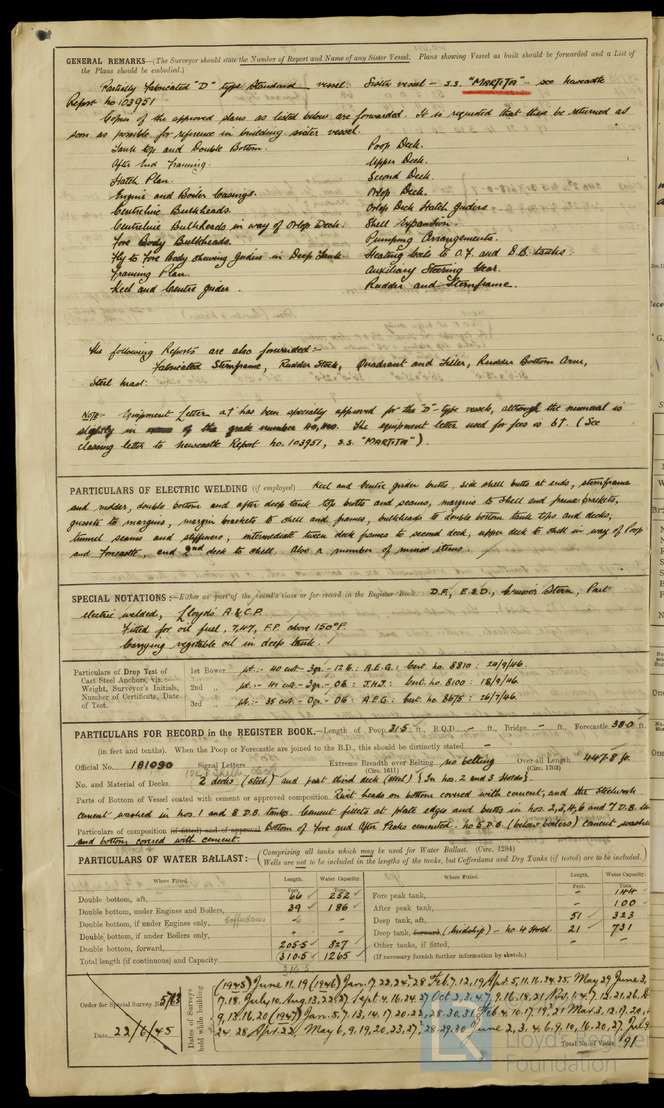 GENERAL REMARKS—(The Surveyor should state the Number of Report and Name of any Sister Vessel. Plans showing Vessel as built should be forwarded and a List of
the Plans should be embodied.)
Partially Fabricated "D" type Standard vessel. Sister vessel – S.S. "MARTITA" – see Newcastle
Report No 103951
Copies of the approved plans as listed below are forwarded. It is requested that these be returned as
soon as possible for reference in building sister vessel.
Tank Top and Double Bottom.
After End Framing.
Hatch Plan.
Engine and Boiler Casings.
Centreline Bulkheads.
Centreline Bulkheads in way of Orlop Deck.
Fore Body Bulkheads.
Fly to Fore Body shewing Girders in Deep Tank
Framing Plan.
Keel and Centre Girder.
Poop Deck.
Upper Deck.
Second Deck.
Orlop Deck.
Orlop Deck Hatch Girders
Shell Expansion.
Pumping Arrangements.
Heating Coils to O.F. and D.B. tanks.
Auxiliary Steering Gear.
Rudder and Sternframe.
The following Reports are also forwarded:-
Fabricated Sternframe, Rudder Stock, Quadrant and Tiller, Rudder Bottom Arm,
Steel Mast.
NOTE- Equipment Letter a† has been specially approved for the "D" type vessels, although the numeral is
slightly in of the grade number 40,400. The equipment letter used for fees is b†. (See
classing letter to Newcastle Report No. 103951, S.S. "MARTITA")
PARTICULARS OF ELECTRIC WELDING (if employed) Keel and Centre girder butts, side shell butts at ends, sternframe
and rudder, double bottom and after deep tank top butts and seams, margins to shell and frame brackets,
gussets to margins, margin brackets to shell and frames, bulkheads to double bottom tank tops and decks,
tunnel seams and stiffeners, intermediate tween deck frames to second deck, upper deck to shell in way of Poop
and Forecastle, and 2nd deck to shell. Also a number of minor items.
SPECIAL NOTATIONS:—Either as part of the vessel's class or for record in the Register Book. D.F., E.S.D., Cruiser Stern, Part
electric welded, Lloyds A.&C.P.
Fitted for oil fuel, 7,47, F.P. above 150°F.
Carrying vegetable oil in deep tank.
Particulars of Drop Test of
Cast Steel Anchors, viz.:—
Weight, Surveyor's Initials,
Number of Certificate, Date
of Test.
1st Bower pt:- 40 cwt - 3qr - 12 lb: A.E.G.: Cert. No. 8810: 24/9/46.
2nd „ pt:- 41 cwt - 3qr - 0 lb: J.H.J: Cert. No. 8100: 18/9/46
3rd „ pt:- 35 cwt - 0qr - 0 lb: A.E.G: Cert. No. 8675: 26/7/46.
PARTICULARS FOR RECORD in the REGISTER BOOK.—Length of Poop 31.5 ft., R.Q.D. – ft., Bridge – ft., Forecastle 38.0 ft.
(in feet and tenths). When the Poop or Forecastle are joined to the B.D., this should be distinctly stated –
Official No. 181090 Signal Letters Extreme Breadth over Belting No belting Over-all Length 447.8 ft.
(Circ. 1611) (Circ. 1703)
No. and Material of Decks 2 decks (steel) and part third deck (steel) {In Nos. 2 and 3 Holds}
Parts of Bottom of Vessel coated with cement or approved composition Rivet heads on bottom covered with cement, and the steelwork
cement washed in Nos. 1 and 8 D.B. tanks. Cement fillets at plate edges and butts in Nos. 2, 3, 4, 6 and 7 D.B.
Particulars of composition (if fitted) and of approval Bottom of Fore and After Peaks cemented. No 5 D.B. (below boilers) cement washed
and bottom covered with cement.
PARTICULARS OF WATER BALLAST:—
(Comprising all tanks which may be used for Water Ballast. (Circ. 1284)
Wells are not to be included in the lengths of the tanks, but Cofferdams and Dry Tanks (if tested) are to be included.)
Where Fitted. Length. Water Capacity. Where Fitted. Length. Water Capacity.
Feet. Tons. Feet. Tons.
Double bottom, aft, 66 252 Fore peak tank, – 144
Double bottom, under Engines and Boilers, 39 186 After peak tank, – 100
Double bottom, if under Engines only, Cofferdams – – Deep tank, aft, 51 323
Double bottom, if under Boilers only, – – Deep tank, forward, (midship) – No. 4 Hold. 21 731
Double bottom, forward, 205.5 827 Other tanks, if fitted, – –
Total length (if continuous) and Capacity 310.5 1265 (If necessary furnish further information by sketch.)
310.5
Order for Special Survey No. 5/63
Date 22/6/45
Dates of Surveys
held while building
(1945) June 11, 19 (1946) Jan. 7, 22, 24, 28 Feb. 7, 12, 19 Apr. 5, 11, 16, 24, 25. May 29 June 3,
7, 18, July 10, Aug. 13, 22, 27, Sept. 4, 16, 24, 27 Oct. 2, 3, 4, 7, 9, 16, 18, 21 Nov. 1, 4, 7, 12, 21, 26,
9, 13, 16, 20 (1947) Jan. 5, 7, 13, 14, 17, 20, 22, 28, 30, 31 Feb. 4, 10, 17, 19, 21 Mar. 3, 12, 17, 20,
24, 28 Apr. 22, May 6, 9, 19, 20, 23, 27, 28, 29, 30 June 2, 3, 4, 6, 9, 10, 16, 20, 27, July 9
Total No. of Visits 91
Lloyd's Register
Foundation